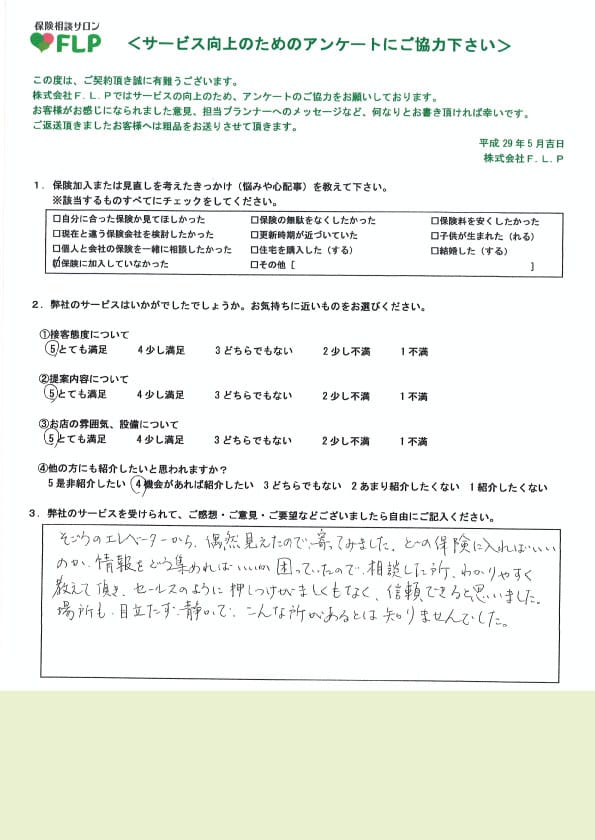 保険相談サロン
FLP
＜サービス向上のためのアンケートにご協力下さい＞
この度は、ご契約頂き誠に有難うございます。
株式会社Ｆ.Ｌ.Ｐではサービスの向上のため、アンケートのご協力をお願いしております。
お客様がお感じになられました意見、担当プランナーへのメッセージなど、何なりとお書き頂ければ幸いです。
ご返送頂きましたお客様へは粗品をお送りさせて頂きます。
平成 29 年 5 月吉日
株式会社Ｆ.Ｌ.Ｐ
１．保険加入または見直しを考えたきっかけ（悩みや心配事）を教えて下さい。
※該当するものすべてにチェックをしてください。
□自分に合った保険か見てほしかった　□保険の無駄をなくしたかった　□保険料を安くしたかった
□現在と違う保険会社を検討したかった　□更新時期が近づいていた　□子供が生まれた（れる）
□個人と会社の保険を一緒に相談したかった　□住宅を購入した（する）　□結婚した（する）
☑保険に加入していなかった　□その他［　］
２．弊社のサービスはいかがでしたでしょうか。お気持ちに近いものをお選びください。
①接客態度について
5 とても満足　4 少し満足　3 どちらでもない　2 少し不満　1 不満
②提案内容について
5 とても満足　4 少し満足　3 どちらでもない　2 少し不満　1 不満
③お店の雰囲気、設備について
5 とても満足　4 少し満足　3 どちらでもない　2 少し不満　1 不満
④他の方にも紹介したいと思われますか？
5 是非紹介したい　4 機会があれば紹介したい　3 どちらでもない　2 あまり紹介したくない　1 紹介したくない
３．弊社のサービスを受けられて、ご感想・ご意見・ご要望などございましたら自由にご記入ください。
そごうのエレベーターから、偶然見えたので、寄ってみました。どの保険に入ればいい
のか、情報をどう集めればいいか困っていたので、相談した所、わかりやすく
教えて頂き、セールスのように押しつけがましくもなく、信頼できると思いました。
場所も、目立たず静かで、こんな所があるとは知りませんでした。